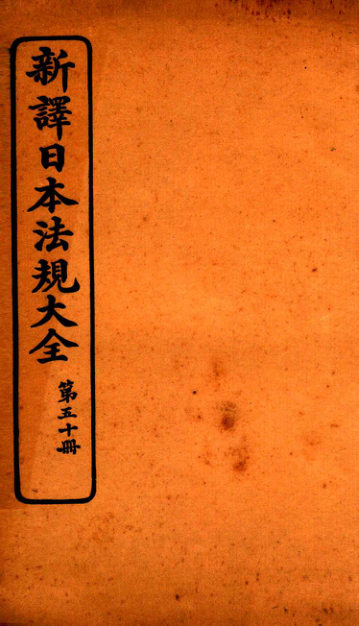 新譯日本法規大全
第五十冊